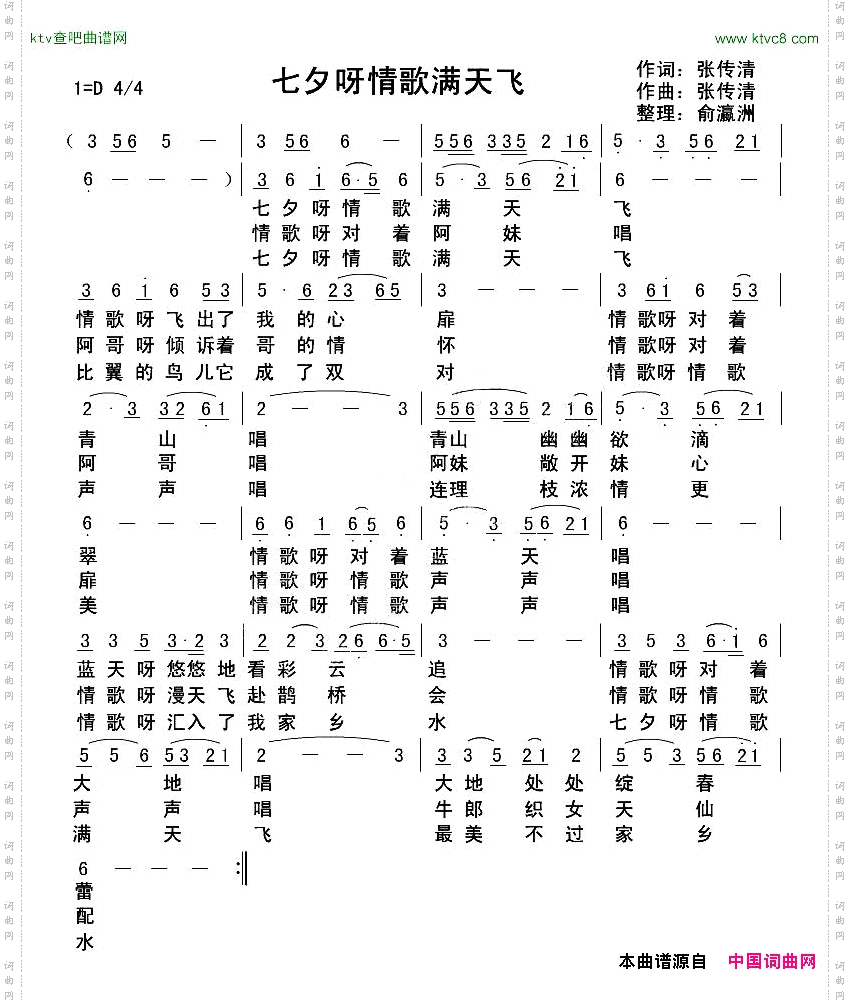 ktv查吧曲谱网
www ktvc8 com
七夕呀情歌满天飞
1=D 4/4
作词：张传清
作曲：张传清
整理：俞瀛洲
（ 3 56 5 — | 3 56 6 — | 556 335 2 16 | 5 · 3 56 21 |
6 — — — ） | 3 6 i 6·5 6 | 5 · 3 56 21 | 6 — — |
七夕呀情歌 满天 飞
情歌呀对着 阿妹 唱
七夕呀情歌 满天 飞
3 6 i 6 53 | 5 · 6 23 65 | 3 — — — | 3 6i 6 53 |
情歌呀飞出了 我的心 扉 情歌呀对着
阿哥呀倾诉着 哥的情 怀 情歌呀对着
比翼的鸟儿它 成了双 对 情歌呀情歌
2 · 3 32 61 | 2 — — 3 | 556 335 2 16 | 5 · 3 56 21 |
青山 唱 青山幽幽 欲滴
阿哥 唱 阿妹敞开 妹心
声声 唱 连理枝浓 情更
6 — — — | 6 6 1 65 6 | 5 · 3 56 21 | 6 — — — |
翠 情歌呀对着 蓝天 唱
扉 情歌呀情歌 声声 唱
美 情歌呀情歌 声声 唱
3 3 5 3·2 3 | 2 2 3 26 6·5 | 3 — — — | 3 5 3 6·i 6 |
蓝天呀悠悠地 看彩云 追 情歌呀对着
情歌呀漫天飞 赴鹊桥 会 情歌呀情歌
情歌呀汇入了 我家乡 水 七夕呀情歌
5 5 6 53 21 | 2 — — 3 | 3 3 5 21 2 | 5 5 3 56 21 |
大地 唱 大地处处 绽春
声声 唱 牛郎织女 天仙
满天 飞 最美不过 家乡
6 — — — :‖
蕾
配
水
本曲谱源自 中国词曲网
词曲网